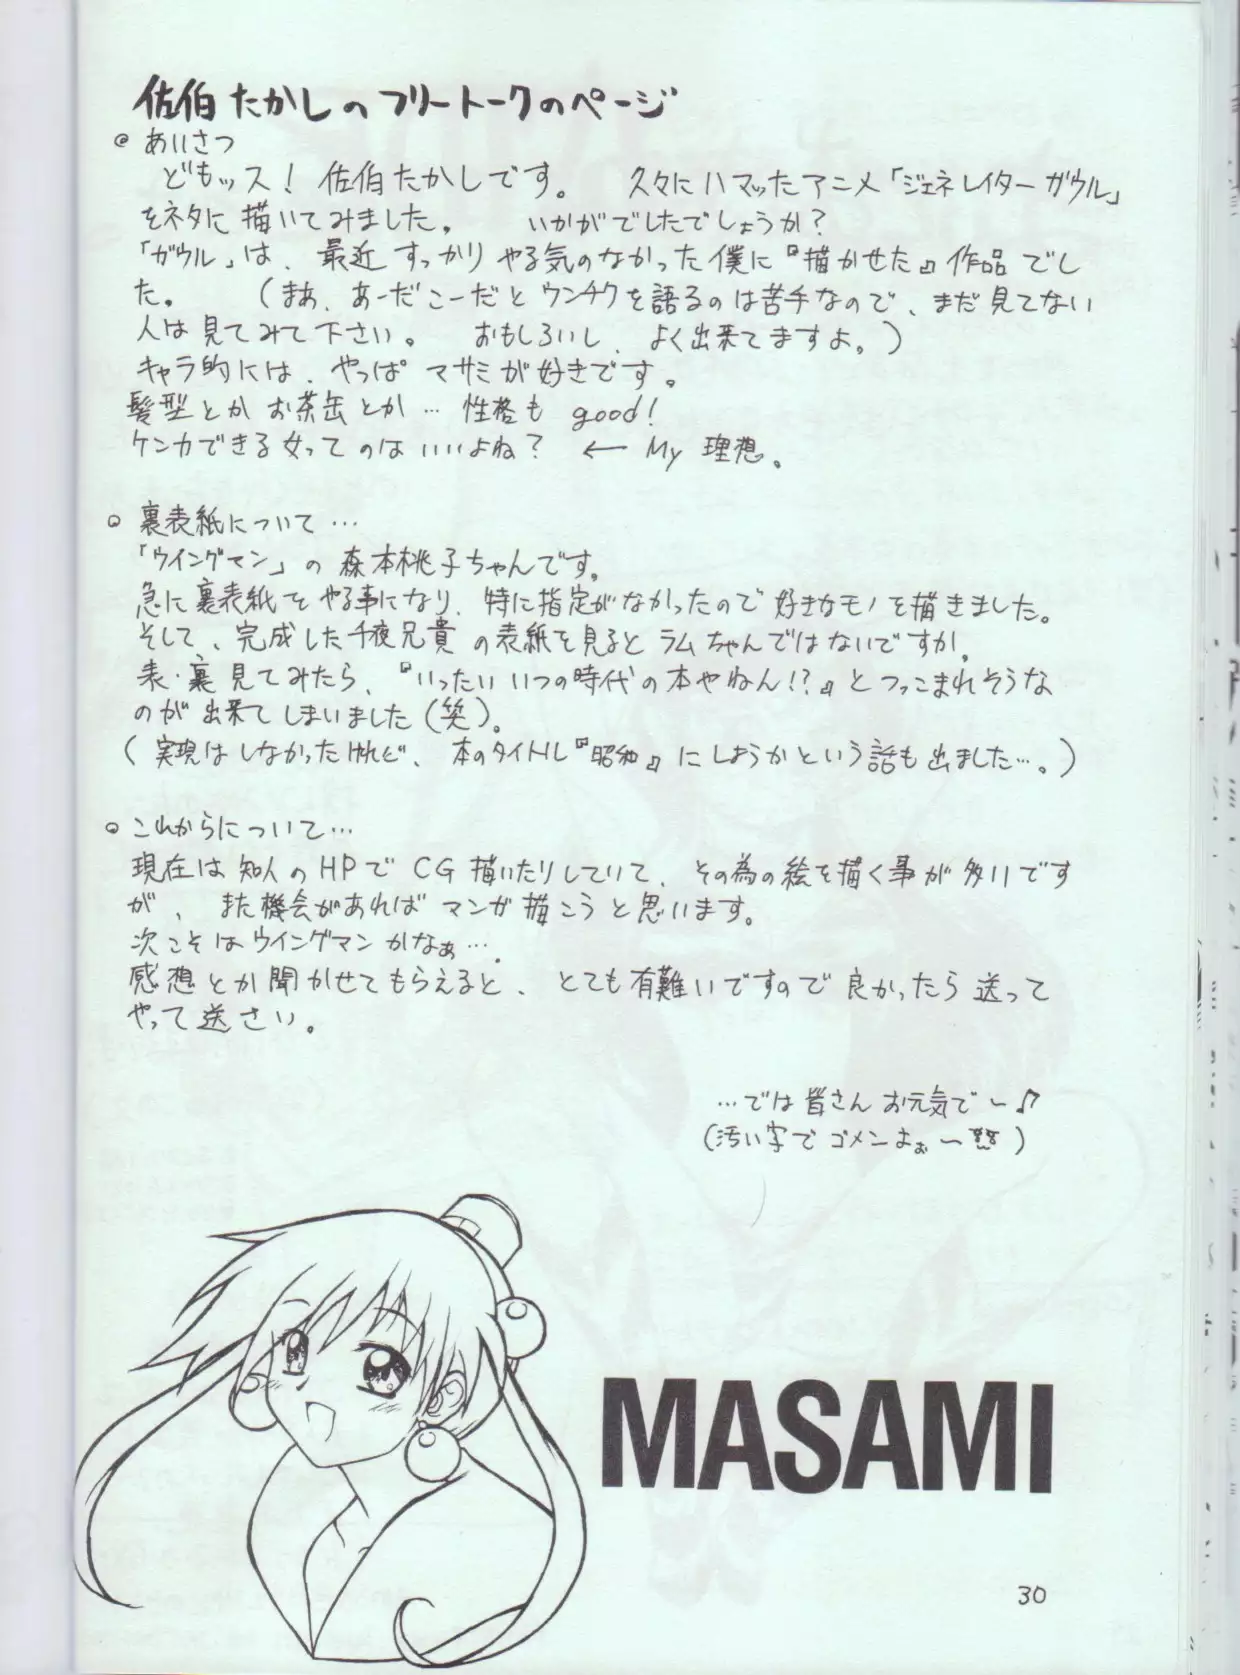 佐伯たかしのフリートークのページ
◎ あいさつ
どもッス! 佐伯たかしです。 久々にハマッたアニメ「ジェネレイターガウル」
をネタに描いてみました。 いかがでしたでしょうか?
「ガウル」は、最近すっかりやる気のなかった僕に『描かせた』作品でし
た。 (まあ、あーだこーだとウンチクを語るのは苦手なので、まだ見てない
人は見てみて下さい。 おもしろいし、よく出来てますよ。)
キャラ的には、やっぱマサミが好きです。
髪型とかお茶缶とか… 性格も good!
ケンカできる女ってのはいいよね? ← My 理想。
○ 裏表紙について…
「ウイングマン」の森本桃子ちゃんです。
急に裏表紙をやる事になり、特に指定がなかったので好きなモノを描きました。
そして、完成した千夜兄貴の表紙を見るとラムちゃんではないですか。
表・裏見てみたら、『いったいいつの時代の本やねん!?』とつっこまれそうな
のが出来てしまいました(笑)。
(実現はしなかったけれど、本のタイトル『昭和』にしようかという話も出ました…。)
○ これからについて…
現在は知人のHPでCG描いたりしていて、その為の絵を描く事が多いです
が、また機会があればマンガ描こうと思います。
次こそはウイングマンかなぁ…。
感想とか聞かせてもらえると、とても有難いですので良かったら送って
やって送さい。
…では皆さんお元気で〜♪
(汚い字でゴメンよぉ〜)
MASAMI
30